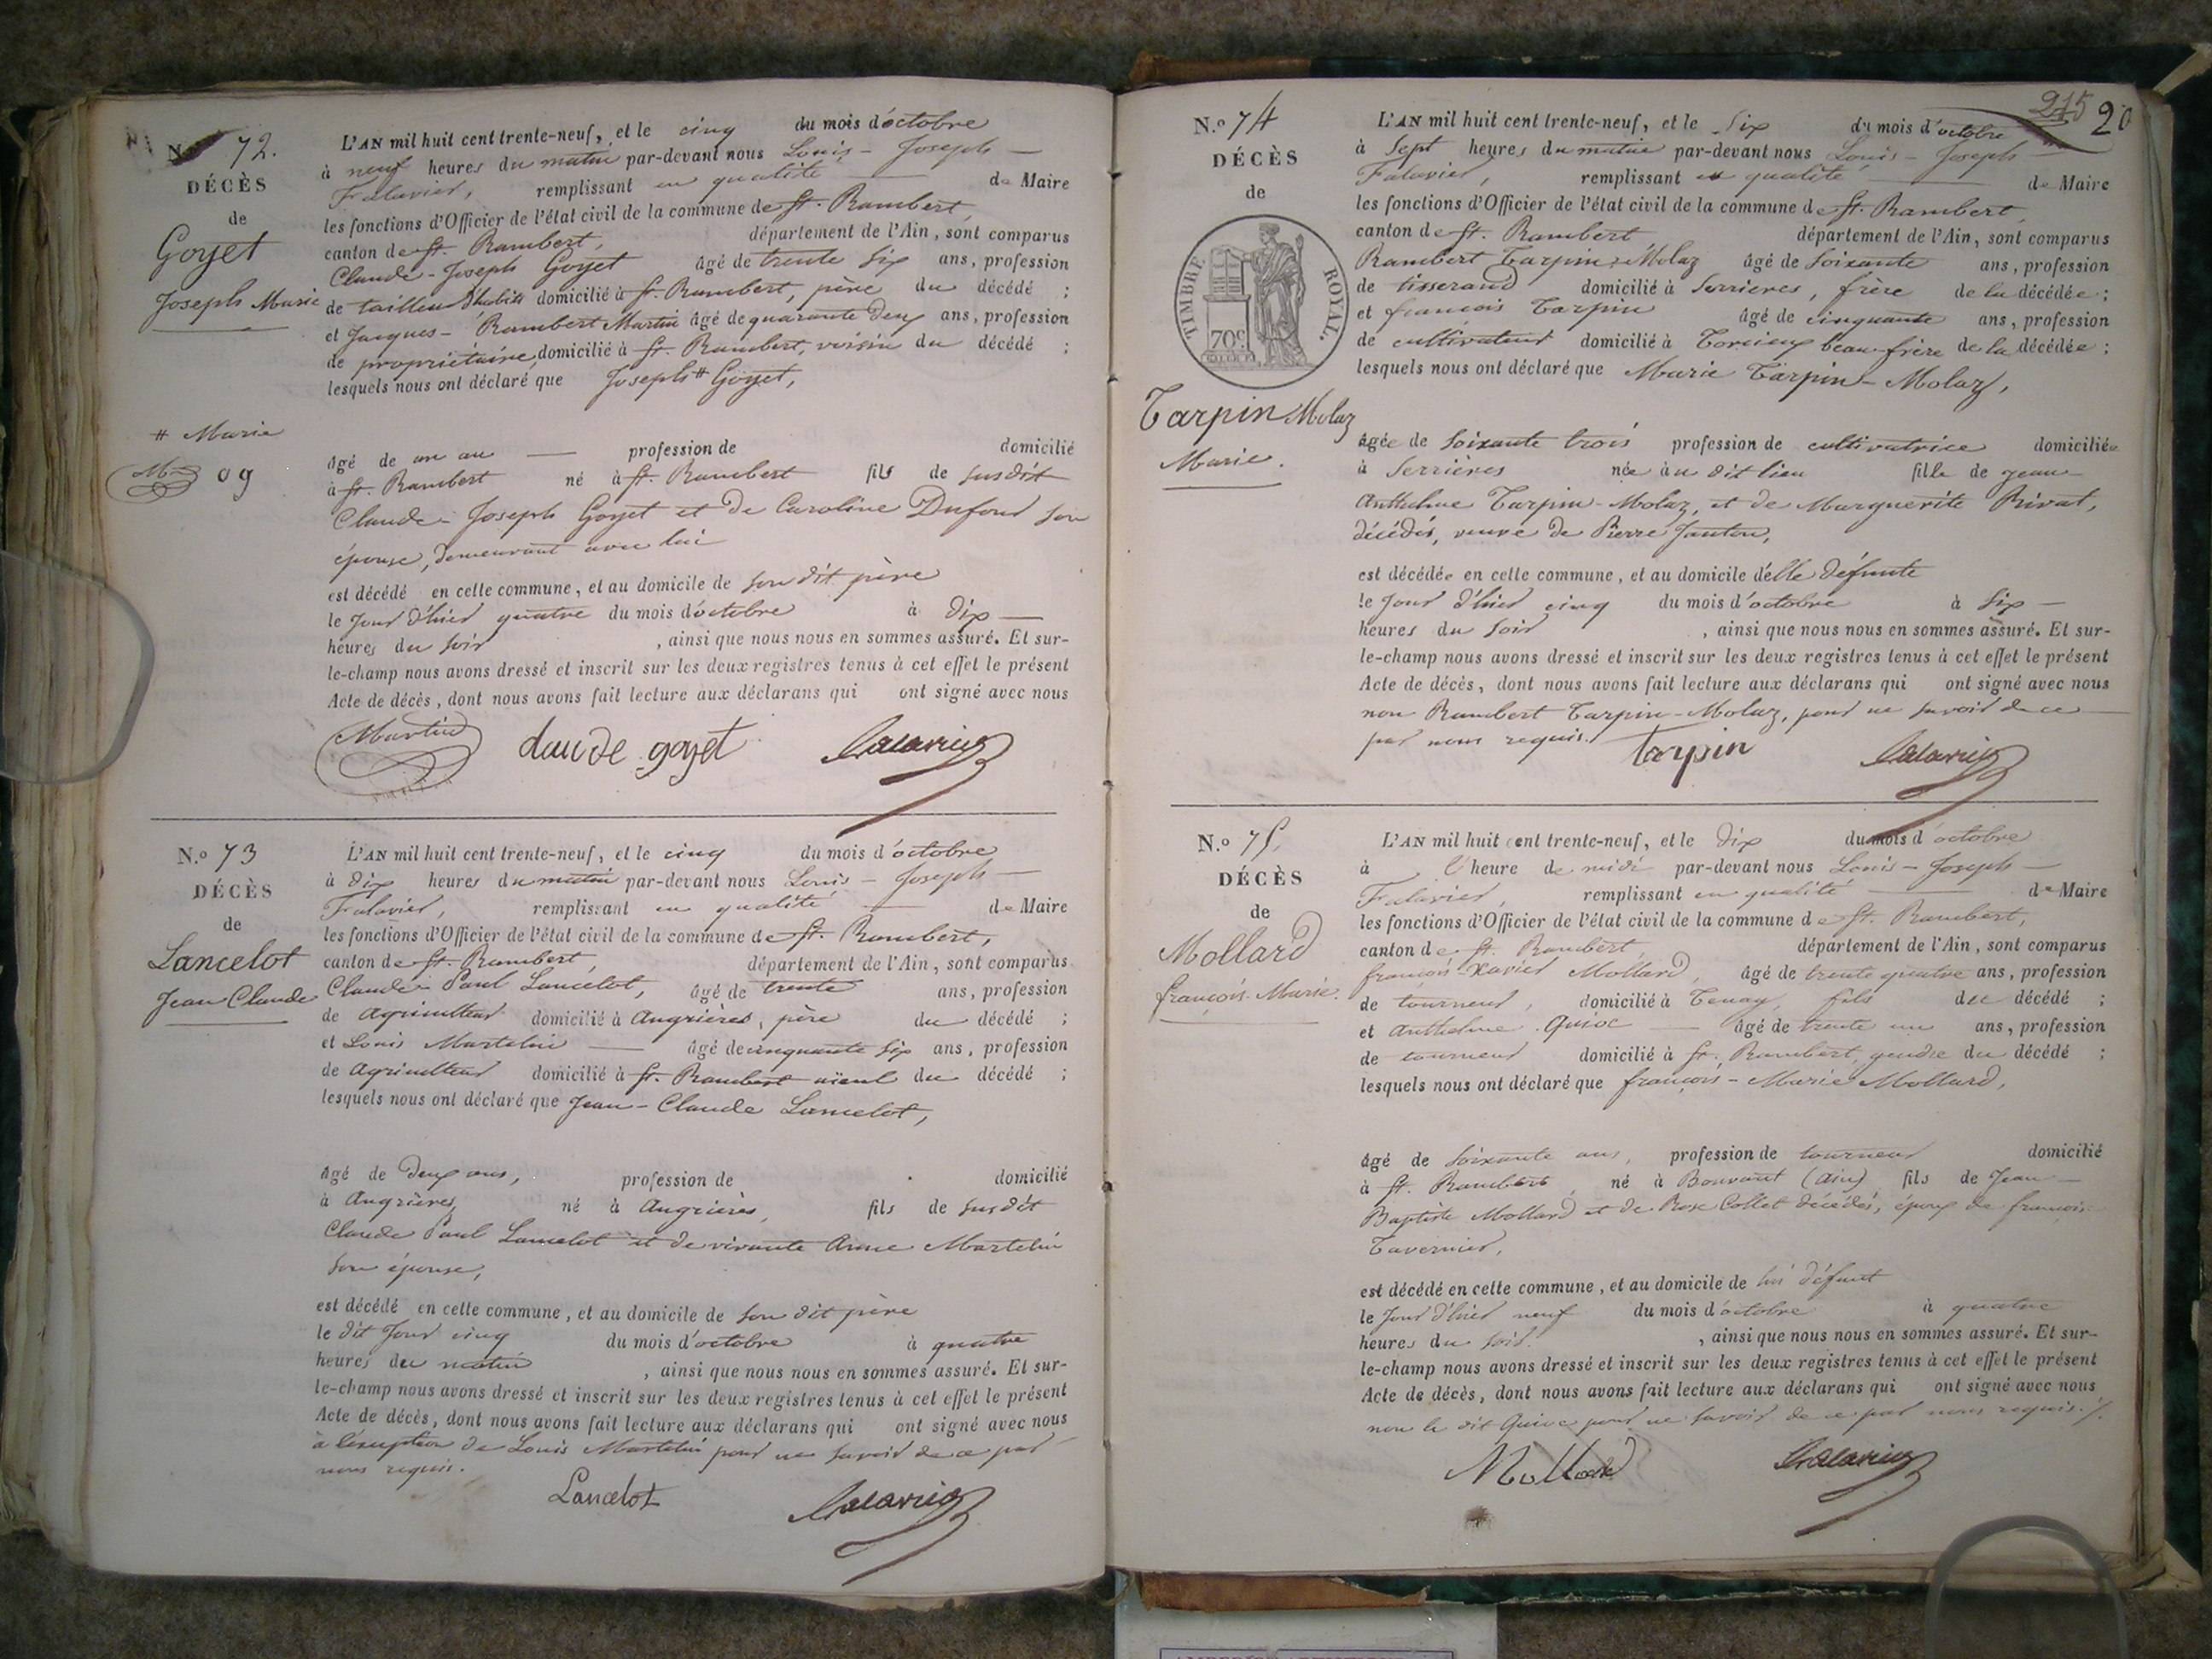 N.o 72.
DÉCÈS
de
Goyet
Joseph Marie
# Marie
L'AN mil huit cent trente-neuf, et le cinq du mois d'octobre
à neuf heures du matin par-devant nous Louis-Joseph
Falavier, remplissant en qualité de Maire
les fonctions d'Officier de l'état civil de la commune de St. Rambert
canton de St. Rambert, département de l'Ain, sont comparus
Claude-Joseph Goyet âgé de trente six ans, profession
de tailleur d'habits domicilié à St. Rambert, père du décédé ;
et Jacques-Rambert Martin âgé de quarante deux ans, profession
de propriétaire, domicilié à St. Rambert, voisin du décédé ;
lesquels nous ont déclaré que Joseph # Goyet,
âgé de un an profession de domicilié
à St. Rambert né à St. Rambert fils de susdit
Claude-Joseph Goyet et de Caroline Dufour son
épouse, demeurant avec lui
est décédé en cette commune, et au domicile de son dit père
le jour d'hier quatre du mois d'octobre à dix
heures du soir, ainsi que nous nous en sommes assuré. Et sur-
le-champ nous avons dressé et inscrit sur les deux registres tenus à cet effet le présent
Acte de décès, dont nous avons fait lecture aux déclarans qui ont signé avec nous
Martin claude goyet Falavier
N.o 73
DÉCÈS
de
Lancelot
Jean Claude
L'AN mil huit cent trente-neuf, et le cinq du mois d'octobre
à dix heures du matin par-devant nous Louis-Joseph
Falavier, remplissant en qualité de Maire
les fonctions d'Officier de l'état civil de la commune de St. Rambert,
canton de St. Rambert, département de l'Ain, sont comparus
Claude-Paul Lancelot, âgé de trente ans, profession
de agriculteur domicilié à Angrières, père du décédé ;
et Louis Martelin âgé de cinquante six ans, profession
de agriculteur domicilié à St. Rambert aïeul du décédé ;
lesquels nous ont déclaré que Jean-Claude Lancelot,
âgé de deux ans, profession de domicilié
à Angrières, né à Angrières, fils de susdit
Claude Paul Lancelot et de vivante Anne Martelin
son épouse,
est décédé en cette commune, et au domicile de son dit père
le dit jour cinq du mois d'octobre à quatre
heures du matin, ainsi que nous nous en sommes assuré. Et sur-
le-champ nous avons dressé et inscrit sur les deux registres tenus à cet effet le présent
Acte de décès, dont nous avons fait lecture aux déclarans qui ont signé avec nous
à l'exception de Louis Martelin pour ne savoir de ce par
nous requis.
Lancelot Falavier
215 20
N.o 74
DÉCÈS
de
TIMBRE ROYAL.
70c
Tarpin Molaz
Marie.
L'AN mil huit cent trente-neuf, et le six du mois d'octobre
à sept heures du matin par-devant nous Louis-Joseph
Falavier, remplissant en qualité de Maire
les fonctions d'Officier de l'état civil de la commune de St. Rambert,
canton de St. Rambert département de l'Ain, sont comparus
Rambert Tarpin-Molaz âgé de soixante ans, profession
de tisserand domicilié à Serrières, frère de la décédée ;
et francois Tarpin âgé de cinquante ans, profession
de cultivateur domicilié à Torcieu beau-frère de la décédée ;
lesquels nous ont déclaré que Marie Tarpin-Molaz,
âgée de soixante trois profession de cultivatrice domiciliée
à Serrières née au dit lieu fille de jean
Anthelme Tarpin-Molaz, et de Marguerite Rivat,
décédés, veuve de Pierre Janton,
est décédée en cette commune, et au domicile d'elle défunte
le jour d'hier cinq du mois d'octobre à six
heures du soir, ainsi que nous nous en sommes assuré. Et sur-
le-champ nous avons dressé et inscrit sur les deux registres tenus à cet effet le présent
Acte de décès, dont nous avons fait lecture aux déclarans qui ont signé avec nous
non Rambert Tarpin-Molaz, pour ne savoir de ce
par nous requis.
Tarpin Falavier
N.o 75.
DÉCÈS
de
Mollard
françois-Marie.
L'AN mil huit cent trente-neuf, et le dix du mois d'octobre
à l'heure de midi par-devant nous Louis-Joseph
Falavier, remplissant en qualité de Maire
les fonctions d'Officier de l'état civil de la commune de St. Rambert,
canton de St. Rambert, département de l'Ain, sont comparus
françois-Xavier Mollard, âgé de trente quatre ans, profession
de tourneur, domicilié à Tenay, fils du décédé ;
et Anthelme Quioc âgé de trente un ans, profession
de tourneur domicilié à St. Rambert, gendre du décédé ;
lesquels nous ont déclaré que françois-Marie Mollard,
âgé de soixante ans, profession de tourneur domicilié
à St. Rambert, né à Bouvant (Ain) fils de Jean
Baptiste Mollard et de Rose Collet décédés, époux de françoise
Tavernier,
est décédé en cette commune, et au domicile de lui défunt
le jour d'hier neuf du mois d'octobre à quatre
heures du soir, ainsi que nous nous en sommes assuré. Et sur-
le-champ nous avons dressé et inscrit sur les deux registres tenus à cet effet le présent
Acte de décès, dont nous avons fait lecture aux déclarans qui ont signé avec nous
non le dit Quioc pour ne savoir de ce par nous requis./.
Mollard Falavier